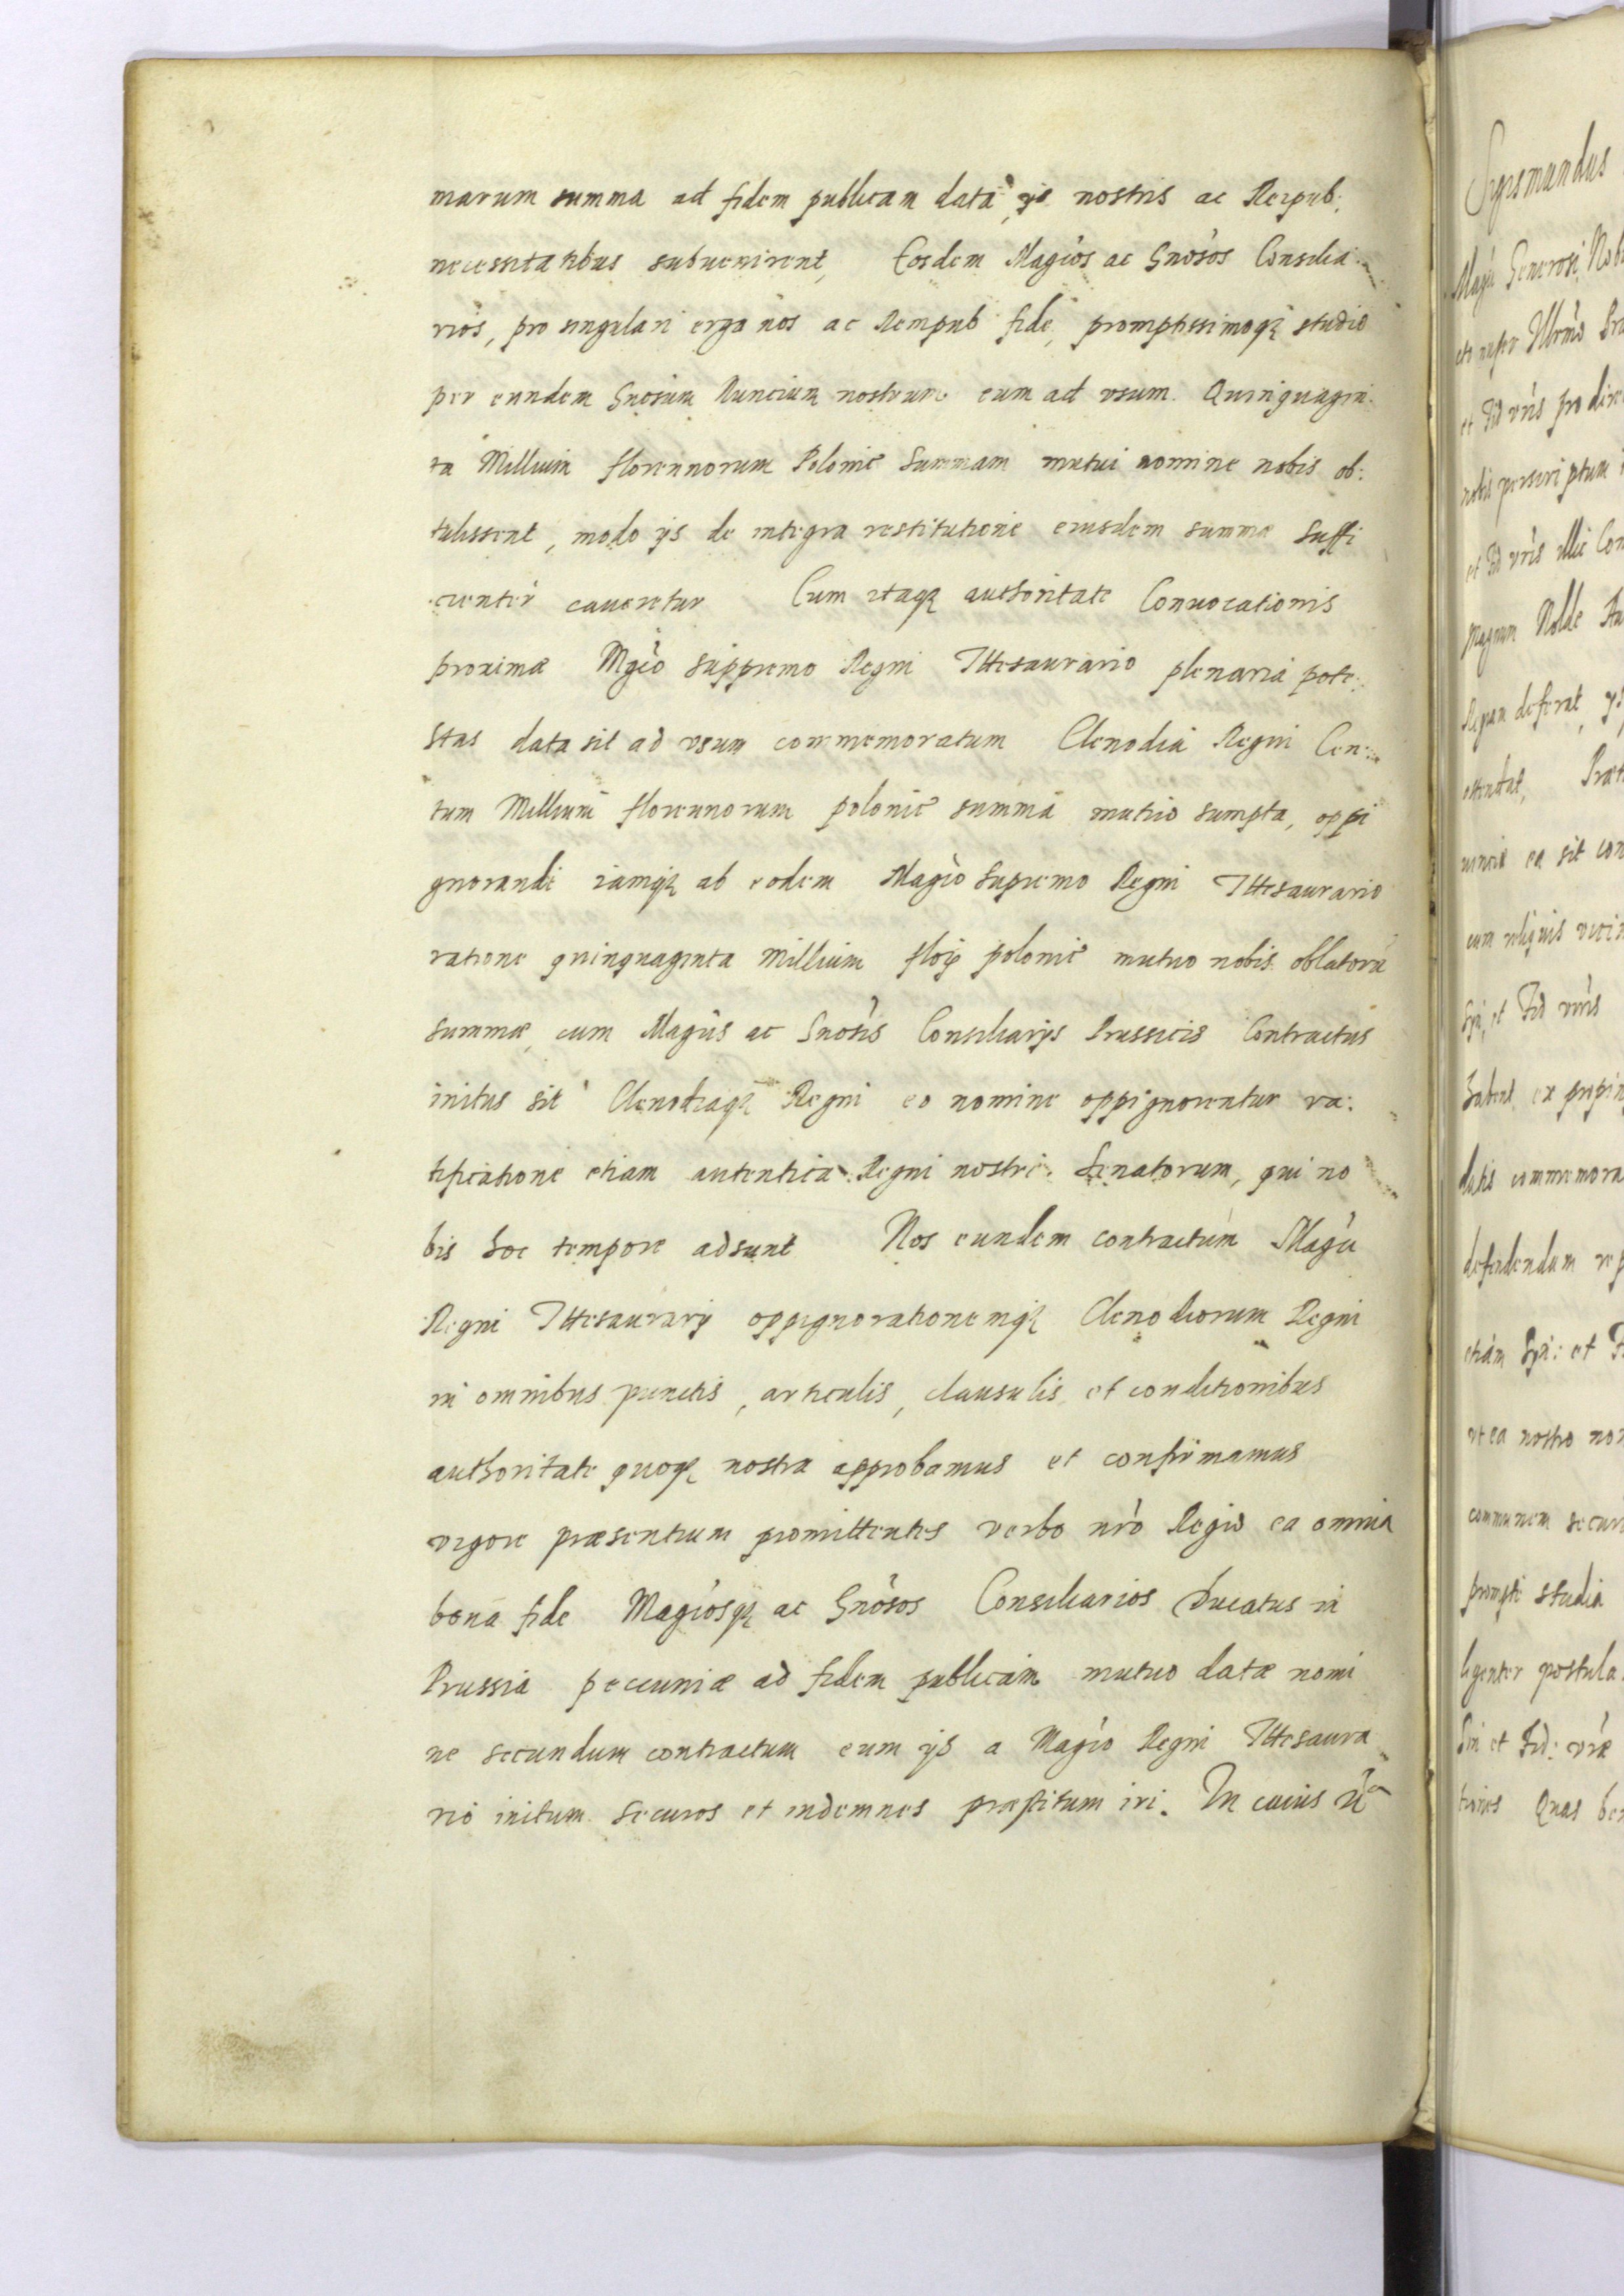 marum summa ad fidem publicam data, ijs nostris ac Reipub:
necessitatibus subuenirent, Eosdem Magcos ac Gnosos Consilia:
rios, pro singulari erga nos ac Rempub fide, promptissimoq3 studio
per eundem Gnosum Nuncium nostrum eum ad vsum Quinquagin:
ta Millium florennorum Polonic Summam mutui nomine nobis ob:
tulissent, modo ijs de integra restitutione eiusdem summæ suffi
cienter caueretur Cum itaq3 authoritate Conuocationis
proximæ Mgco suppremo Regni Thesaurario plenaria pote:
stas data sit ad vsum commemoratum Clenodia Regni Cen:
tum Millium florennorum polonic summa mutuo sumpta, oppi
gnorandi iamq3 ab eodem Magco Supremo Regni Thesaurario
ratione quinquaginta Millium flor polonic mutuo nobis oblatoru
summæ, cum Magcis ac Gnosis Consiliarijs Prussicis Contractus
initus sit Clenodiaq3 Regni eo nomine oppignorentur ra:
tificatione etiam autentica Regni nostri Senatorum, qui no
bis hoc tempore adsunt Nos eundem contractum Magci
Regni Thesaurarij oppignorationemq3 Clenodiorum Regni
in omnibus punctis, articulis, clausulis et conditionibus
authoritate quoq3 nostra approbamus et confirmamus
vigore præsentium promittentes verbo nro Regio ea omnia
bona fide Magcosq3 ac Gnosos Consiliarios Ducatus in
Prussia pecuniæ ad fidem publicam mutuo datæ nomi
ne secundum contractum cum ijs a Magco Regni Thesaura
rio initum securos et indemnes præstitum iri. In cuius
Sigismundus
Magci Generosi, Nob
et Fid vris pro
nobis perscriptum
et Fid vris illic Con
Magnum Nolde
deferat, ys
ea sit con
cum reliquis
et Fid vris
habent, ex
commemora
defendendam
etiam Syn: et F
vt ea nostro no
communem secur
prompte studia
postula
Sin et Fid: vræ
Quas be